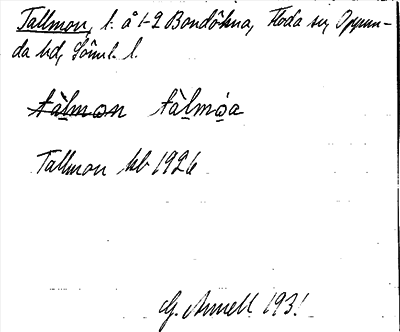 Tallmon, l. å 1-2 Bondökna, Floda sn, Oppun-
da hd, Söml. l.
tàlmon tàlmóa
Tallmon kb 1926
G. Annell 1931